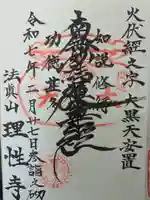 火伏経之字 大黒天安置
如説修行
南無妙法蓮華経
功徳甚多
令和七年二月廿七日参詣之砌
法眞山 理性寺